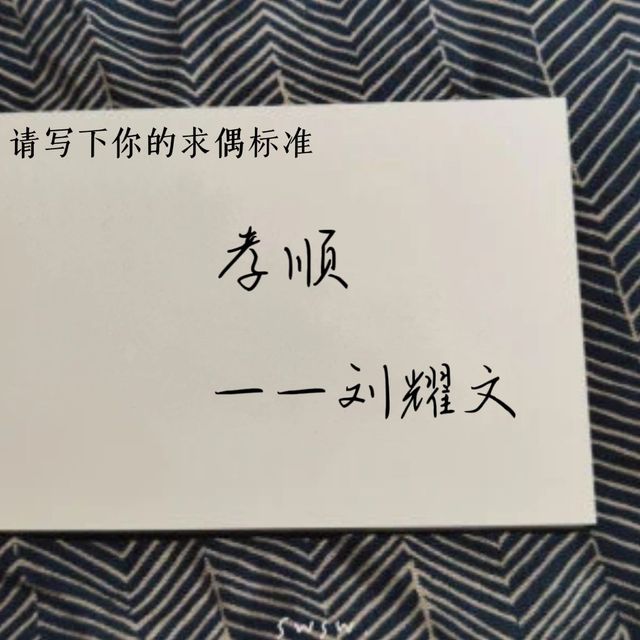 请写下你的求偶标准
孝顺
——刘耀文
swsw.